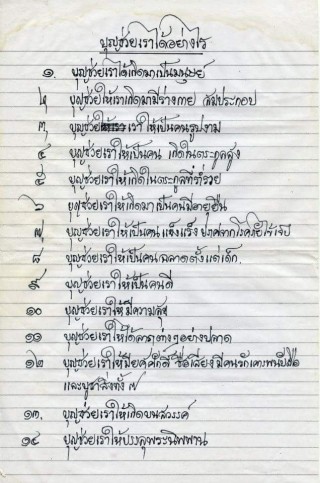 บุญช่วยเราได้อย่างไร
๑. บุญช่วยเราได้เกิดมาเป็นมนุษย์
๒ บุญช่วยให้เราเกิดมามีร่างกาย สมประกอบ
๓ บุญช่วยเราให้เป็นคนรูปงาม
๔ บุญช่วยเราให้เป็นคน เกิดในตระกูลสูง
๕ บุญช่วยเราให้เกิดในตระกูลที่ร่ำรวย
๖ บุญช่วยให้เกิดมาเป็นคนมีอายุยืน
๗ บุญช่วยเราให้เป็นคน แข็งแรง ปราศจากโรคภัย
๘ บุญช่วยเราให้เป็นคนฉลาดตั้งแต่เด็ก.
๙ บุญช่วยเราให้เป็นคนดี
๑๐ บุญช่วยเราให้มีความสุข
๑๑ บุญช่วยเราให้ได้ลาภต่างๆอย่างปลาด
๑๒ บุญช่วยเราให้มียศศักดิ์ ชื่อเสียง มีคนรักเคารพนับถือ
และบูชา
๑๓. บุญช่วยเราให้เกิดบนสวรรค์
๑๔ บุญช่วยเราให้บรรลุพระนิพพาน